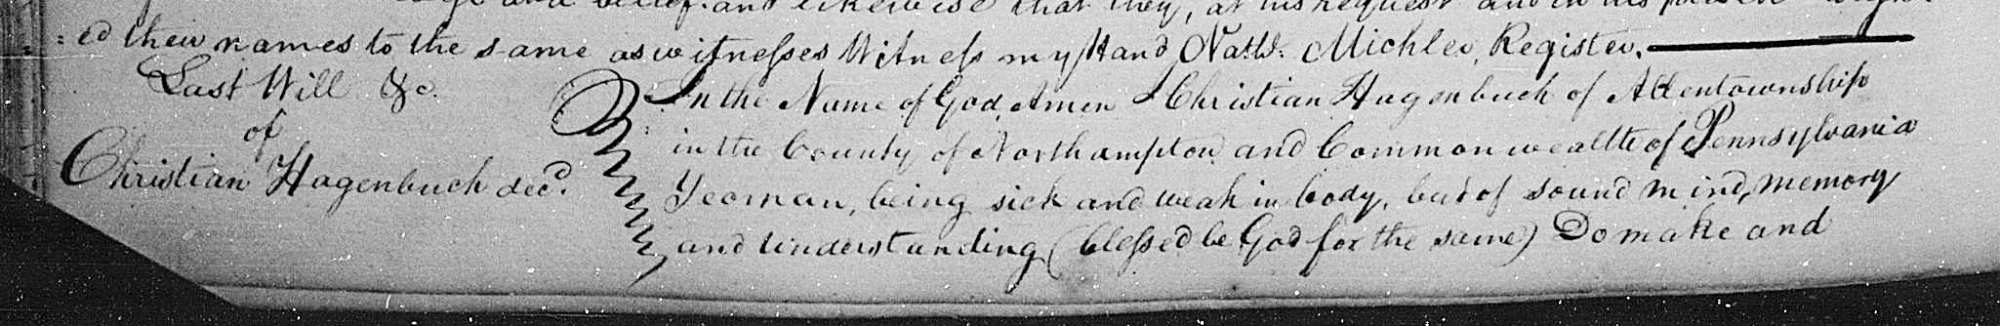 and belief. and likewise that they, at his request and in his
=ed their names to the same as witnesses Witness my Hand Nathl. Michler, Register.
Last Will &c.
of
Christian Hagenbuch decd.
In the Name of God Amen I Christian Hagenbuch of Allentownship
in the County of Northampton and Commonwealth of Pennsylvania
Yeoman, being sick and weak in body, but of sound mind, memory
and understanding (blessed be God for the same) Do make and